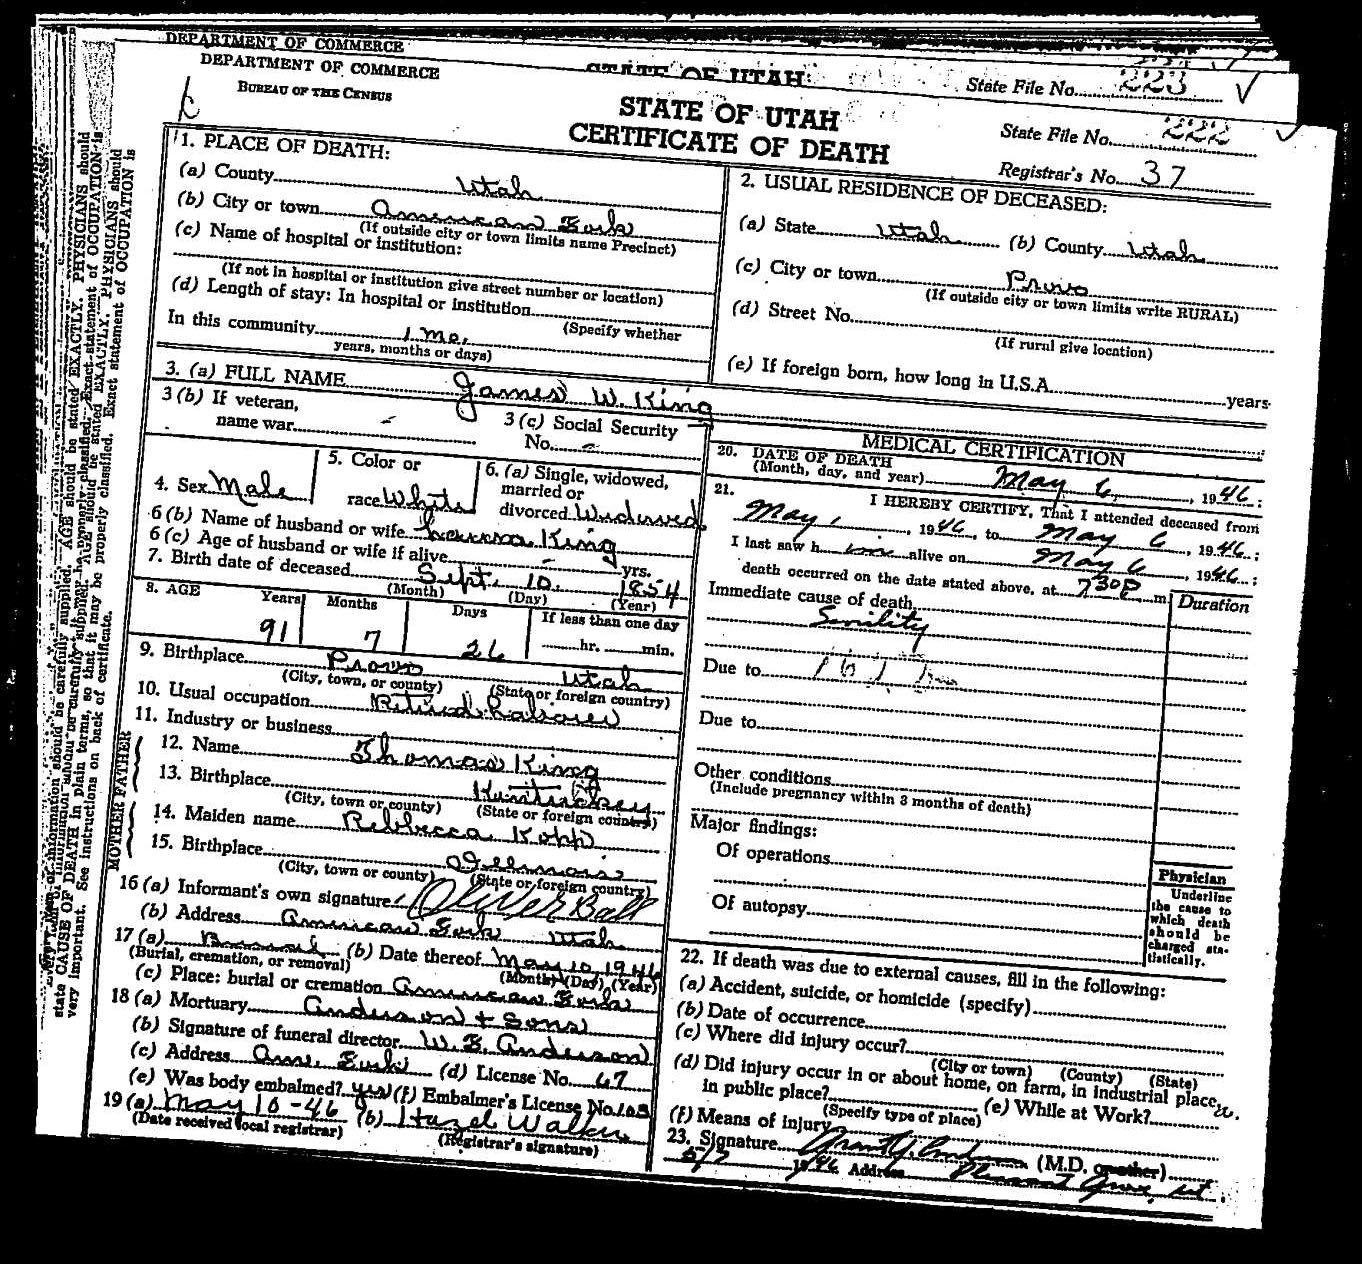 DEPARTMENT OF COMMERCE
DEPARTMENT OF COMMERCE
BUREAU OF THE CENSUS
STATE OF UTAH
STATE OF UTAH
CERTIFICATE OF DEATH
State File No. 223
State File No. 222
Registrar's No. 37
1. PLACE OF DEATH:
(a) County Utah
(b) City or town American Fork
(If outside city or town limits name Precinct)
(c) Name of hospital or institution:
(If not in hospital or institution give street number or location)
(d) Length of stay: In hospital or institution
(Specify whether
In this community 1 mo.
years, months or days)
2. USUAL RESIDENCE OF DECEASED:
(a) State Utah (b) County Utah
(c) City or town Provo
(If outside city or town limits write RURAL)
(d) Street No.
(If rural give location)
(e) If foreign born, how long in U.S.A. years
3. (a) FULL NAME James W. King
3 (b) If veteran,
name war -
3 (c) Social Security
No. -
4. Sex Male
5. Color or
race White
6. (a) Single, widowed,
married or
divorced Widowed
6 (b) Name of husband or wife King
6 (c) Age of husband or wife if alive - yrs.
7. Birth date of deceased Sept. 10. 1854
(Month) (Day) (Year)
8. AGE Years Months Days If less than one day
91 7 26 hr. min.
9. Birthplace Provo Utah
(City, town, or county) (State or foreign country)
10. Usual occupation Retired Laborer
11. Industry or business
FATHER
12. Name Thomas King
13. Birthplace
(City, town or county) (State or foreign country)
MOTHER
14. Maiden name Rebbecca Kopp
15. Birthplace Illinois
(City, town or county) (State or foreign country)
16 (a) Informant's own signature Oliver Ball
(b) Address American Fork Utah
17 (a) Burial (b) Date thereof May 10, 1946
(Burial, cremation, or removal) (Month) (Day) (Year)
(c) Place: burial or cremation American Fork
18 (a) Mortuary Anderson + Sons
(b) Signature of funeral director W. E. Anderson
(c) Address Am. Fork (d) License No. 67
(e) Was body embalmed? yes (f) Embalmer's License No. 103
19 (a) May 10-46 (b) Hazel Walker
(Date received local registrar) (Registrar's signature)
MEDICAL CERTIFICATION
20. DATE OF DEATH
(Month, day, and year) May 6, 1946:
21. I HEREBY CERTIFY, That I attended deceased from
May 1, 1946, to May 6, 1946:
I last saw him alive on May 6, 1946:
death occurred on the date stated above, at 730P m
Immediate cause of death Duration
Senility
Due to
Due to
Other conditions
(Include pregnancy within 3 months of death)
Major findings:
Of operations
Of autopsy
Physician
Underline
the cause to
which death
should be
charged sta-
tistically.
22. If death was due to external causes, fill in the following:
(a) Accident, suicide, or homicide (specify)
(b) Date of occurrence
(c) Where did injury occur?
(City or town) (County) (State)
(d) Did injury occur in or about home, on farm, in industrial place,
in public place? (e) While at Work?
(Specify type of place)
(f) Means of injury
23. Signature (M.D. or other)
5/7 1946 Address Pleasant Grove, Ut.